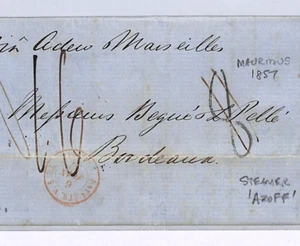 Viâ Aden & Marseilles
MAURITIUS
1857
Messieurs Begué & Pellé
Bordeaux.
STEAMER
'AZOFF'